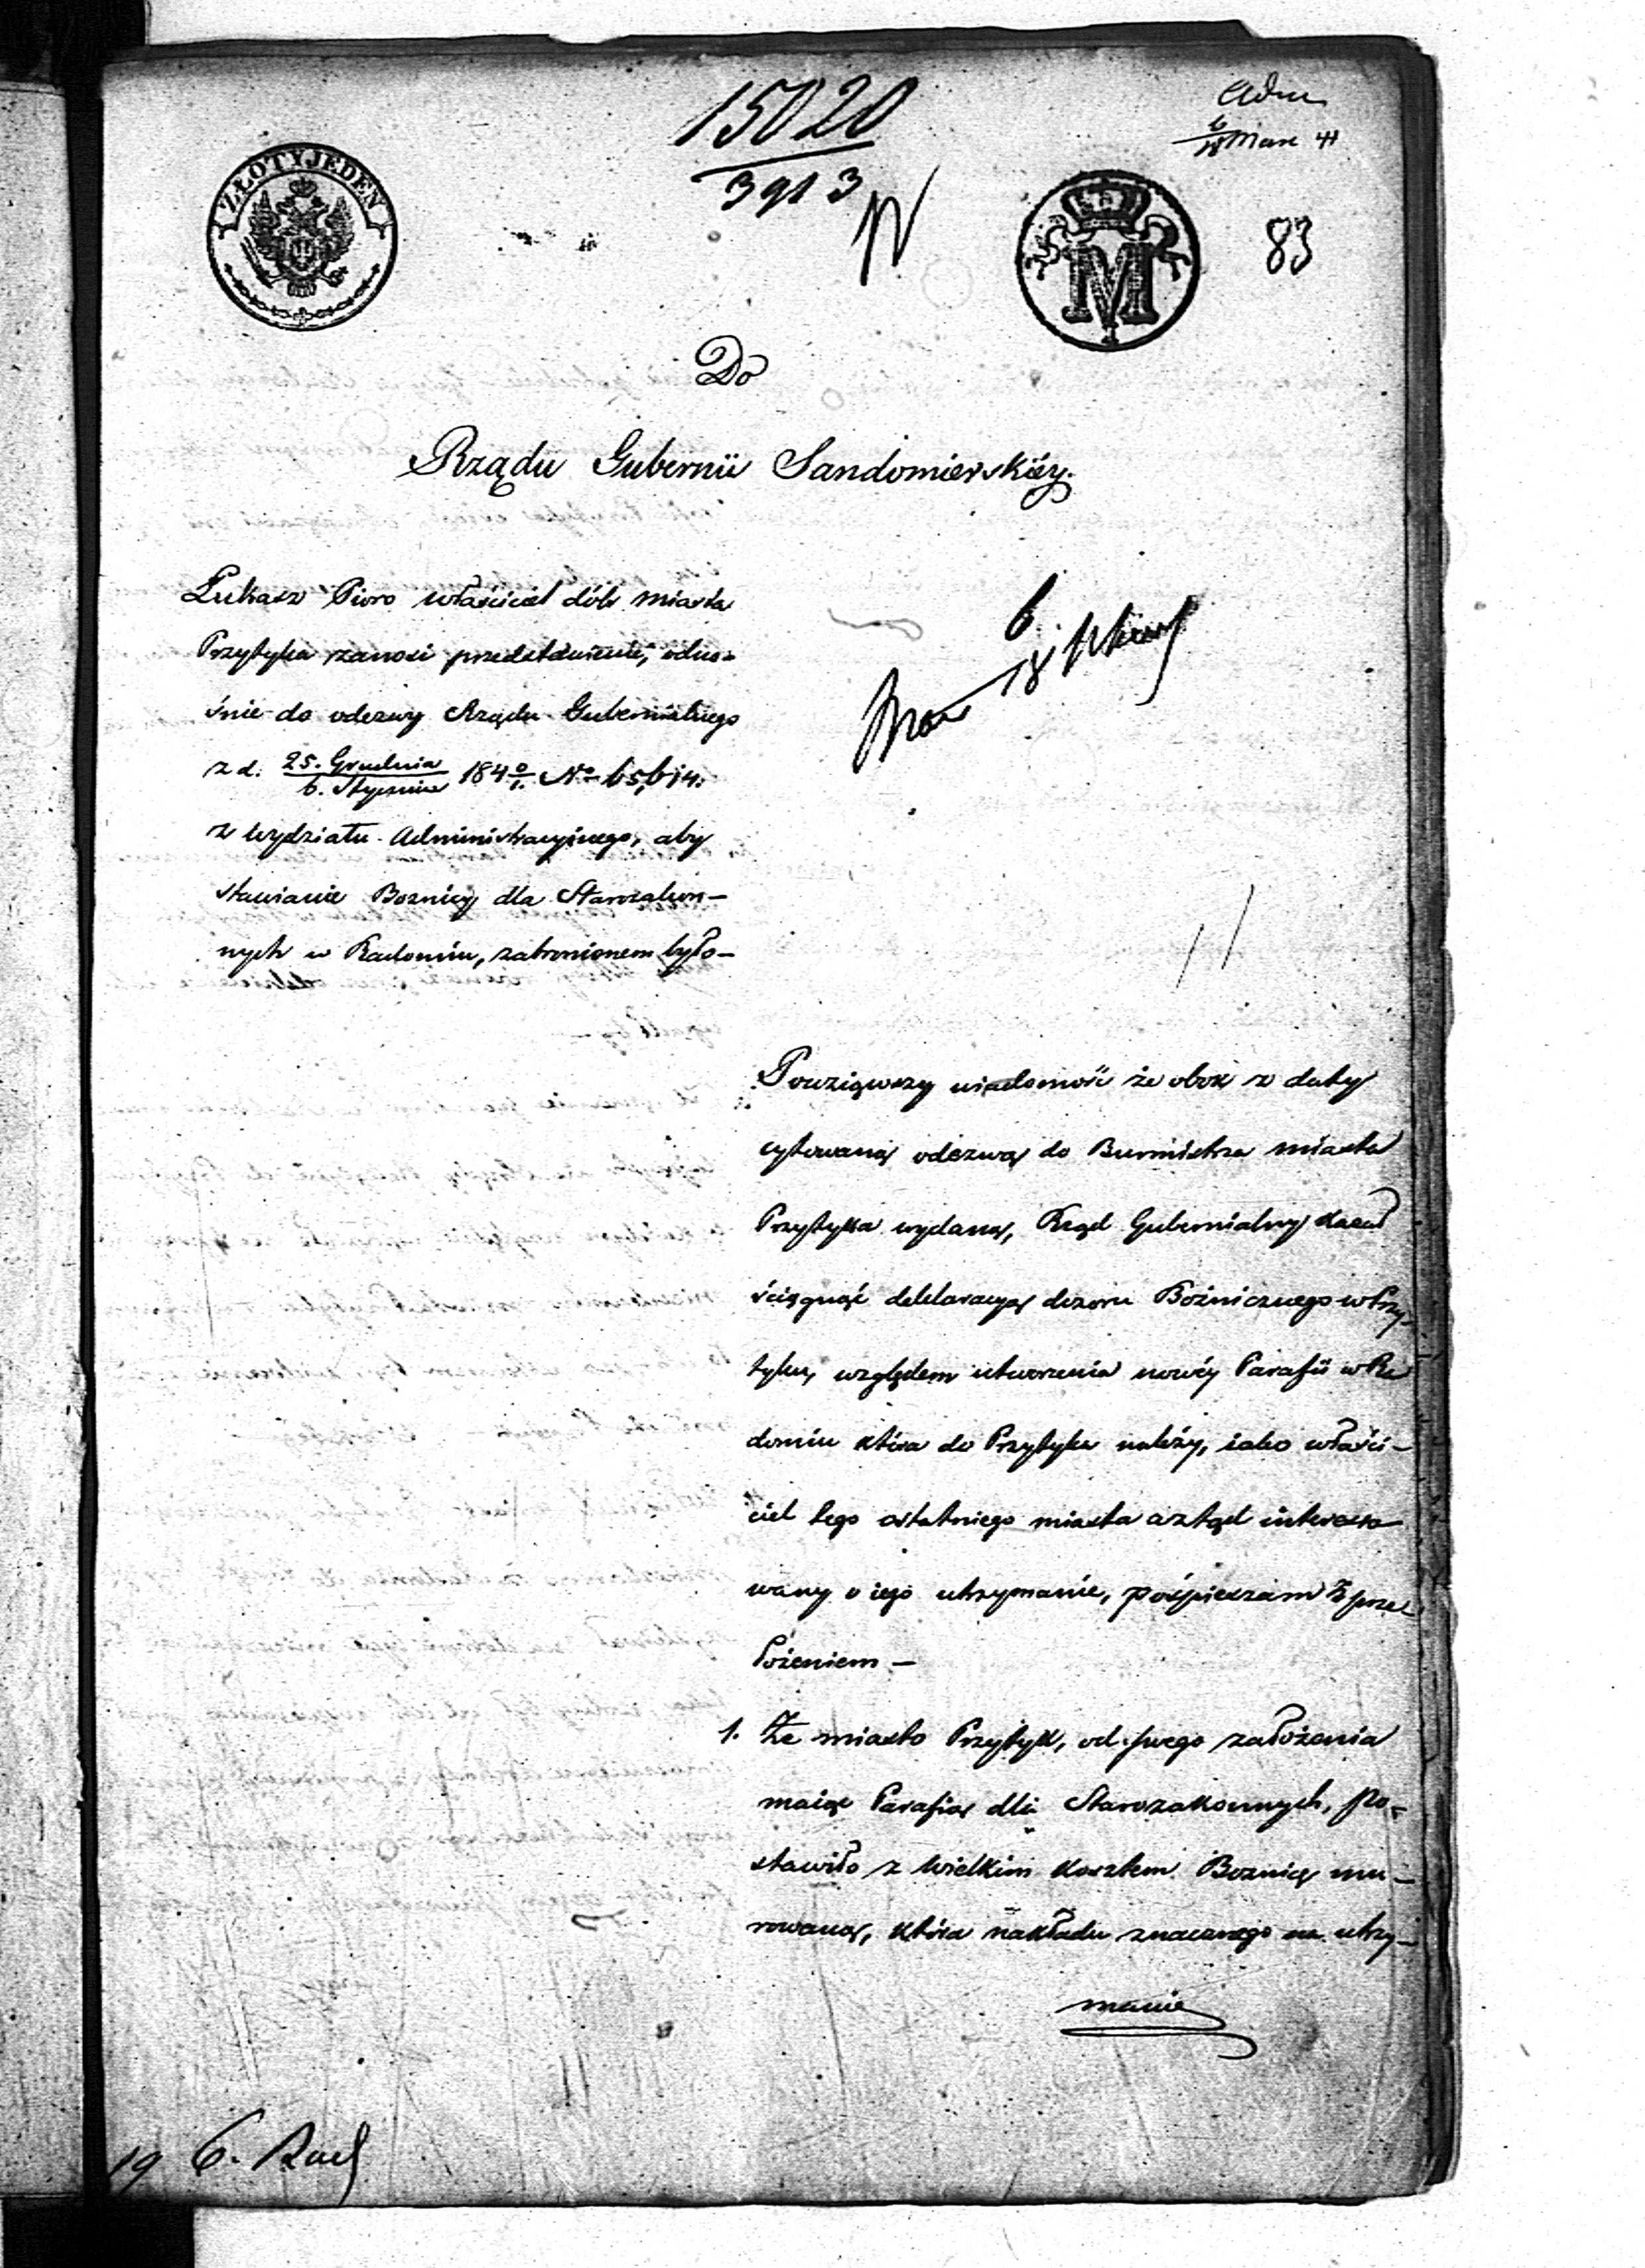 15020
3913
Adm
6/18 Marc 41
ZŁOTY JEDEN
M
83
Do
Rządu Gubernii Sandomierskiéy.
Łukasz Pioro właściciel dóbr miasta
Przytyka zanosi przedstawienie, odno-
śnie do odezwy Rządu Gubernialnego
z d. 25. Grudnia / 6. Stycznia 1840/1. No 65,614.
z Wydziału Administracyjnego, aby
stawianie Boznicy dla Starozakon-
nych w Radomiu, zabronionem było-
6/18
Powziąwszy wiadomość że obok z daty
cytowaną odezwą do Burmistrza miasta
Przytyka wydaną, Rząd Gubernialny kazał
ściągnąć deklaracyą dozoru Bóżnicznego w Przy-
tyku, względem utworzenia nowéy Parafii w Ra
domiu która do Przytyka należy, iako właści-
ciel tego ostatniego miasta a ztąd interesso-
wany o iego utrzymanie, pośpieszam z prze
łożeniem —
1. Że miasto Przytyk, od swego założenia
maiąc Parafią dla Starozakonnych, po-
stawiło z wielkim kosztem Boznicę mu-
rowaną, która nakładu znacznego na utrzy-
manie
19 6.